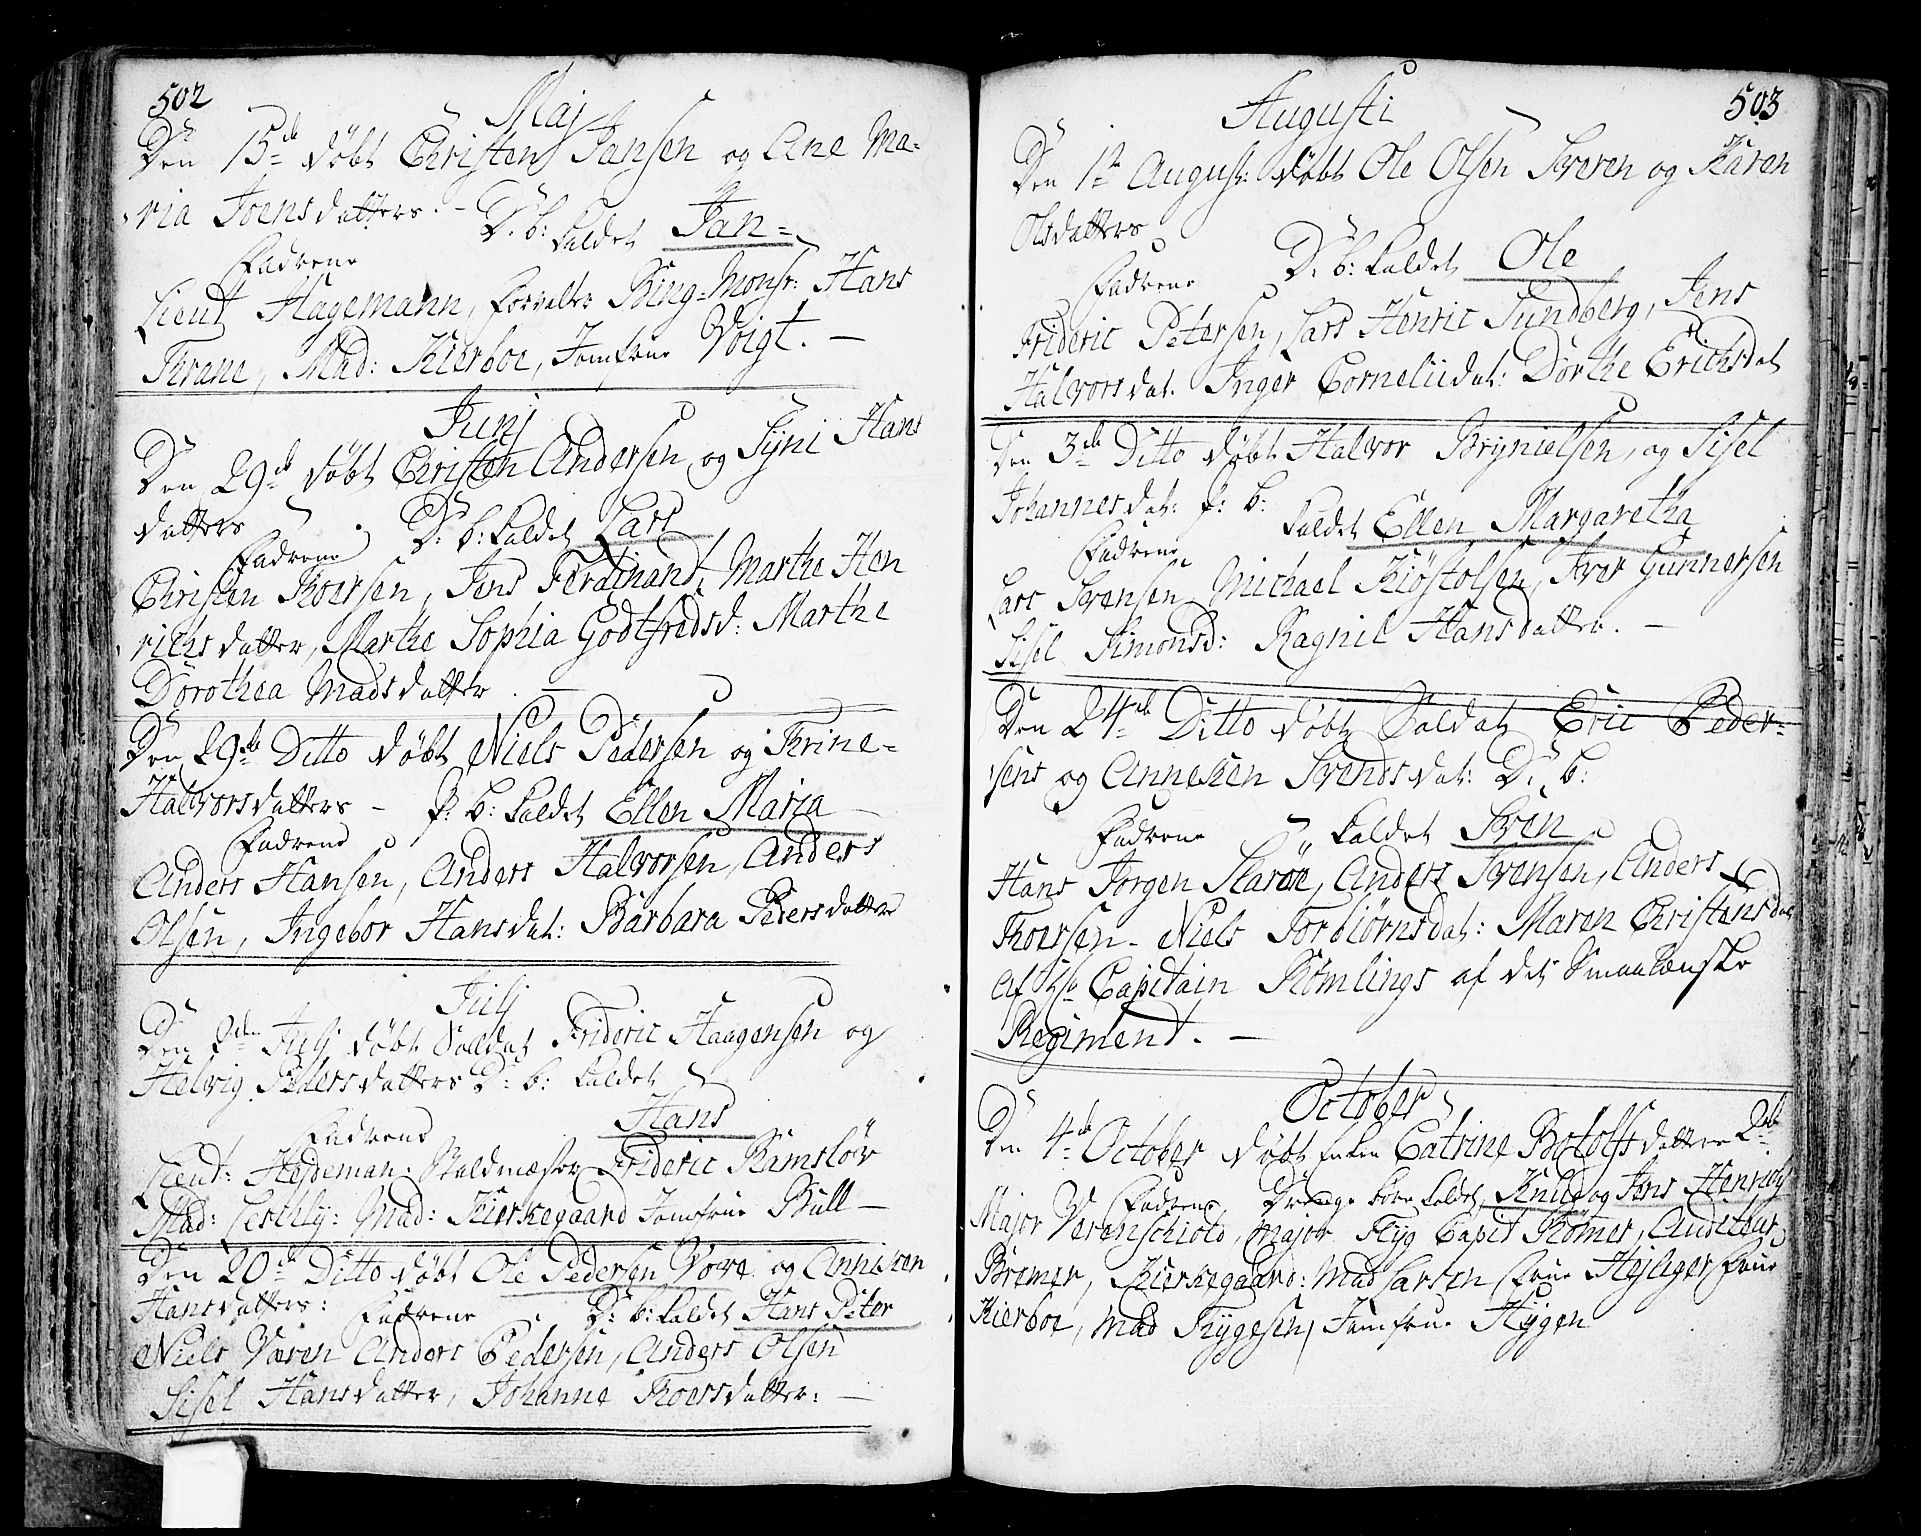 502
Maj
Den 15de døbt Christen Jansen og Ane Ma-
ria Joensdatters. - D: b: kaldet Jan -
Fadrene
Lieut Hagemann, forvalter Bing - Monsr: Hans
Krane, Mad: Kierboe, Jomfrue Voigt. -
Junj
Den 29de døbt Christen Andersen og Syni Hans
datters D: b: kaldet Lars
Fadrene
Christen Thoersen, Jens Ferdinand, Marthe Hen
richsdatter, Marthe Sophia Godtfredsd: Marthe
Dorothea Madsdatter. -
Den 29de Ditto døbt Niels Pedersen og Trine-
Halvorsdatters - p: b: kaldet Ellen Maria
Fadrene
Anders Hansen, Anders Halvorsen, Anders
Olsen, Ingebor Hansdat: Barbara Pedersdatter
Julj
Den Julj døbt Soldat Frideric Haagensen og
Helvig Pedersdatters D: b: kaldet
Hans
Fadrene
Lieut: Hejdeman: Staldmæster Frideric Ramsløv
Mad: Leschly: Mad: Kierkegaard Jomfrue Bull -
Den 20de Ditto døbt Ole Pedersen Vove og Anniken
Hansdatters: Fadrene D: b: kaldet Hans Peter
Niels Væren Anders Pedersen, Anders Olsen
Sisel Hansdatter, Johanne Thoersdatter: -
503
Augusti
Den 1te August: døbt Ole Olsen Sveren og Karen
Olsdatters
D: b: kaldet Ole
Fadrene
Frideric Petersen, Lars Henric Sundberg, Jens
Halvorsdat. Inger Corneliidat: Dorthe Erichsdat
Den 3de Ditto døbt Halvor Brynielsen, og Sisel
Johannesdat: p: b:
kaldet Ellen Margaretha
Fadrene
Lars Svensen, Michael Kiøstolsen, Iver Gunnersen
Sisel Simonsd: Ragnil Hansdatter. -
Den 24de Ditto døbt Soldat Eric Peder-
sens og Anneken Svendsdat: D: b:
Fadrene kaldet Sven
Hans Jørgen Skarøe, Anders Svensen, Anders
Thoersen - Niels Torbiørnsdat: Maren Christensdat
Af Hr Capitain Rømlings af det Smaalenske
Regiment. -
October
Den 4de October døbt Enken Catrine Botolfsdatters 2de
Fadrene, Drenge børn kaldet, Knud og Jens Henrich
Major Verenschiold, Major Flyg Capit Rømer, Auditeur
Bremer, Kierkegaard: Mad Larsen Frue Hejliger Frue
Kierboe, Mad Trygesen, Jomfrue Hygen